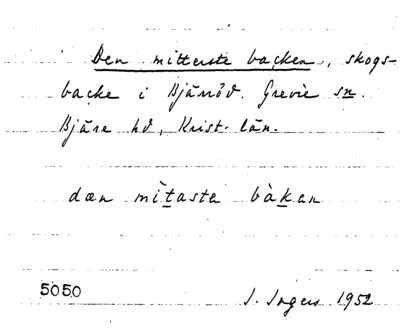 Den mitterste backen, skogs-
backe i Bjäröd. Grevie sn.
Bjäre hd, Krist. län.
dæn mìtasta bàkan
5050
I. Ingers 1952